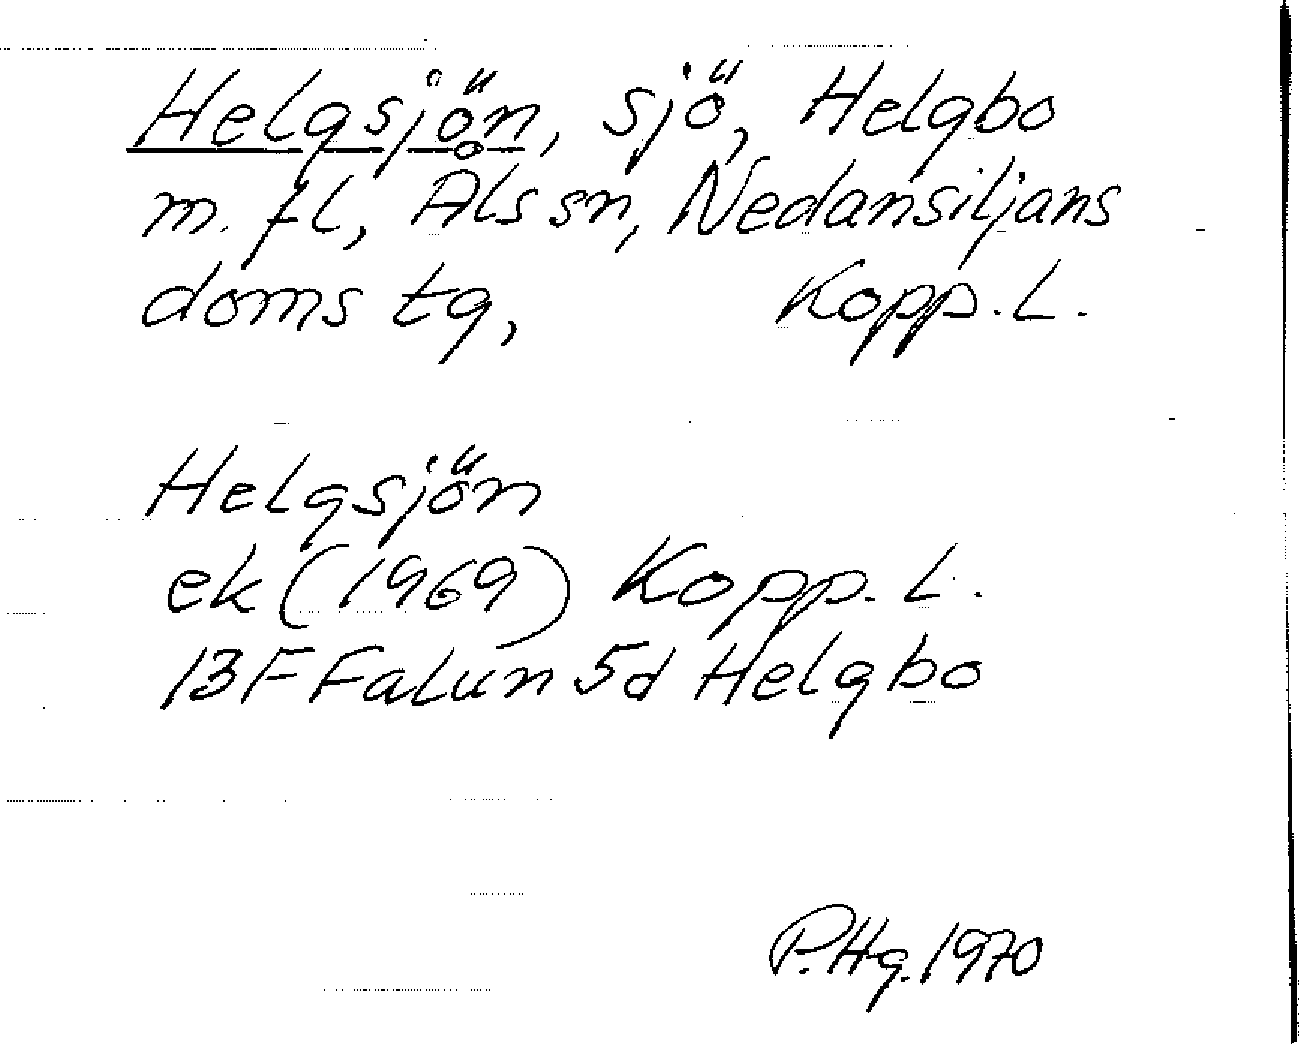 Helgsjön, sjö, Helgbo
m. fl, Åls sn, Nedansiljans
doms tg, Kopp. L.
Helgsjön
ek (1969) Kopp. L.
13F Falun 5d Helgbo
P.Hg. 1970